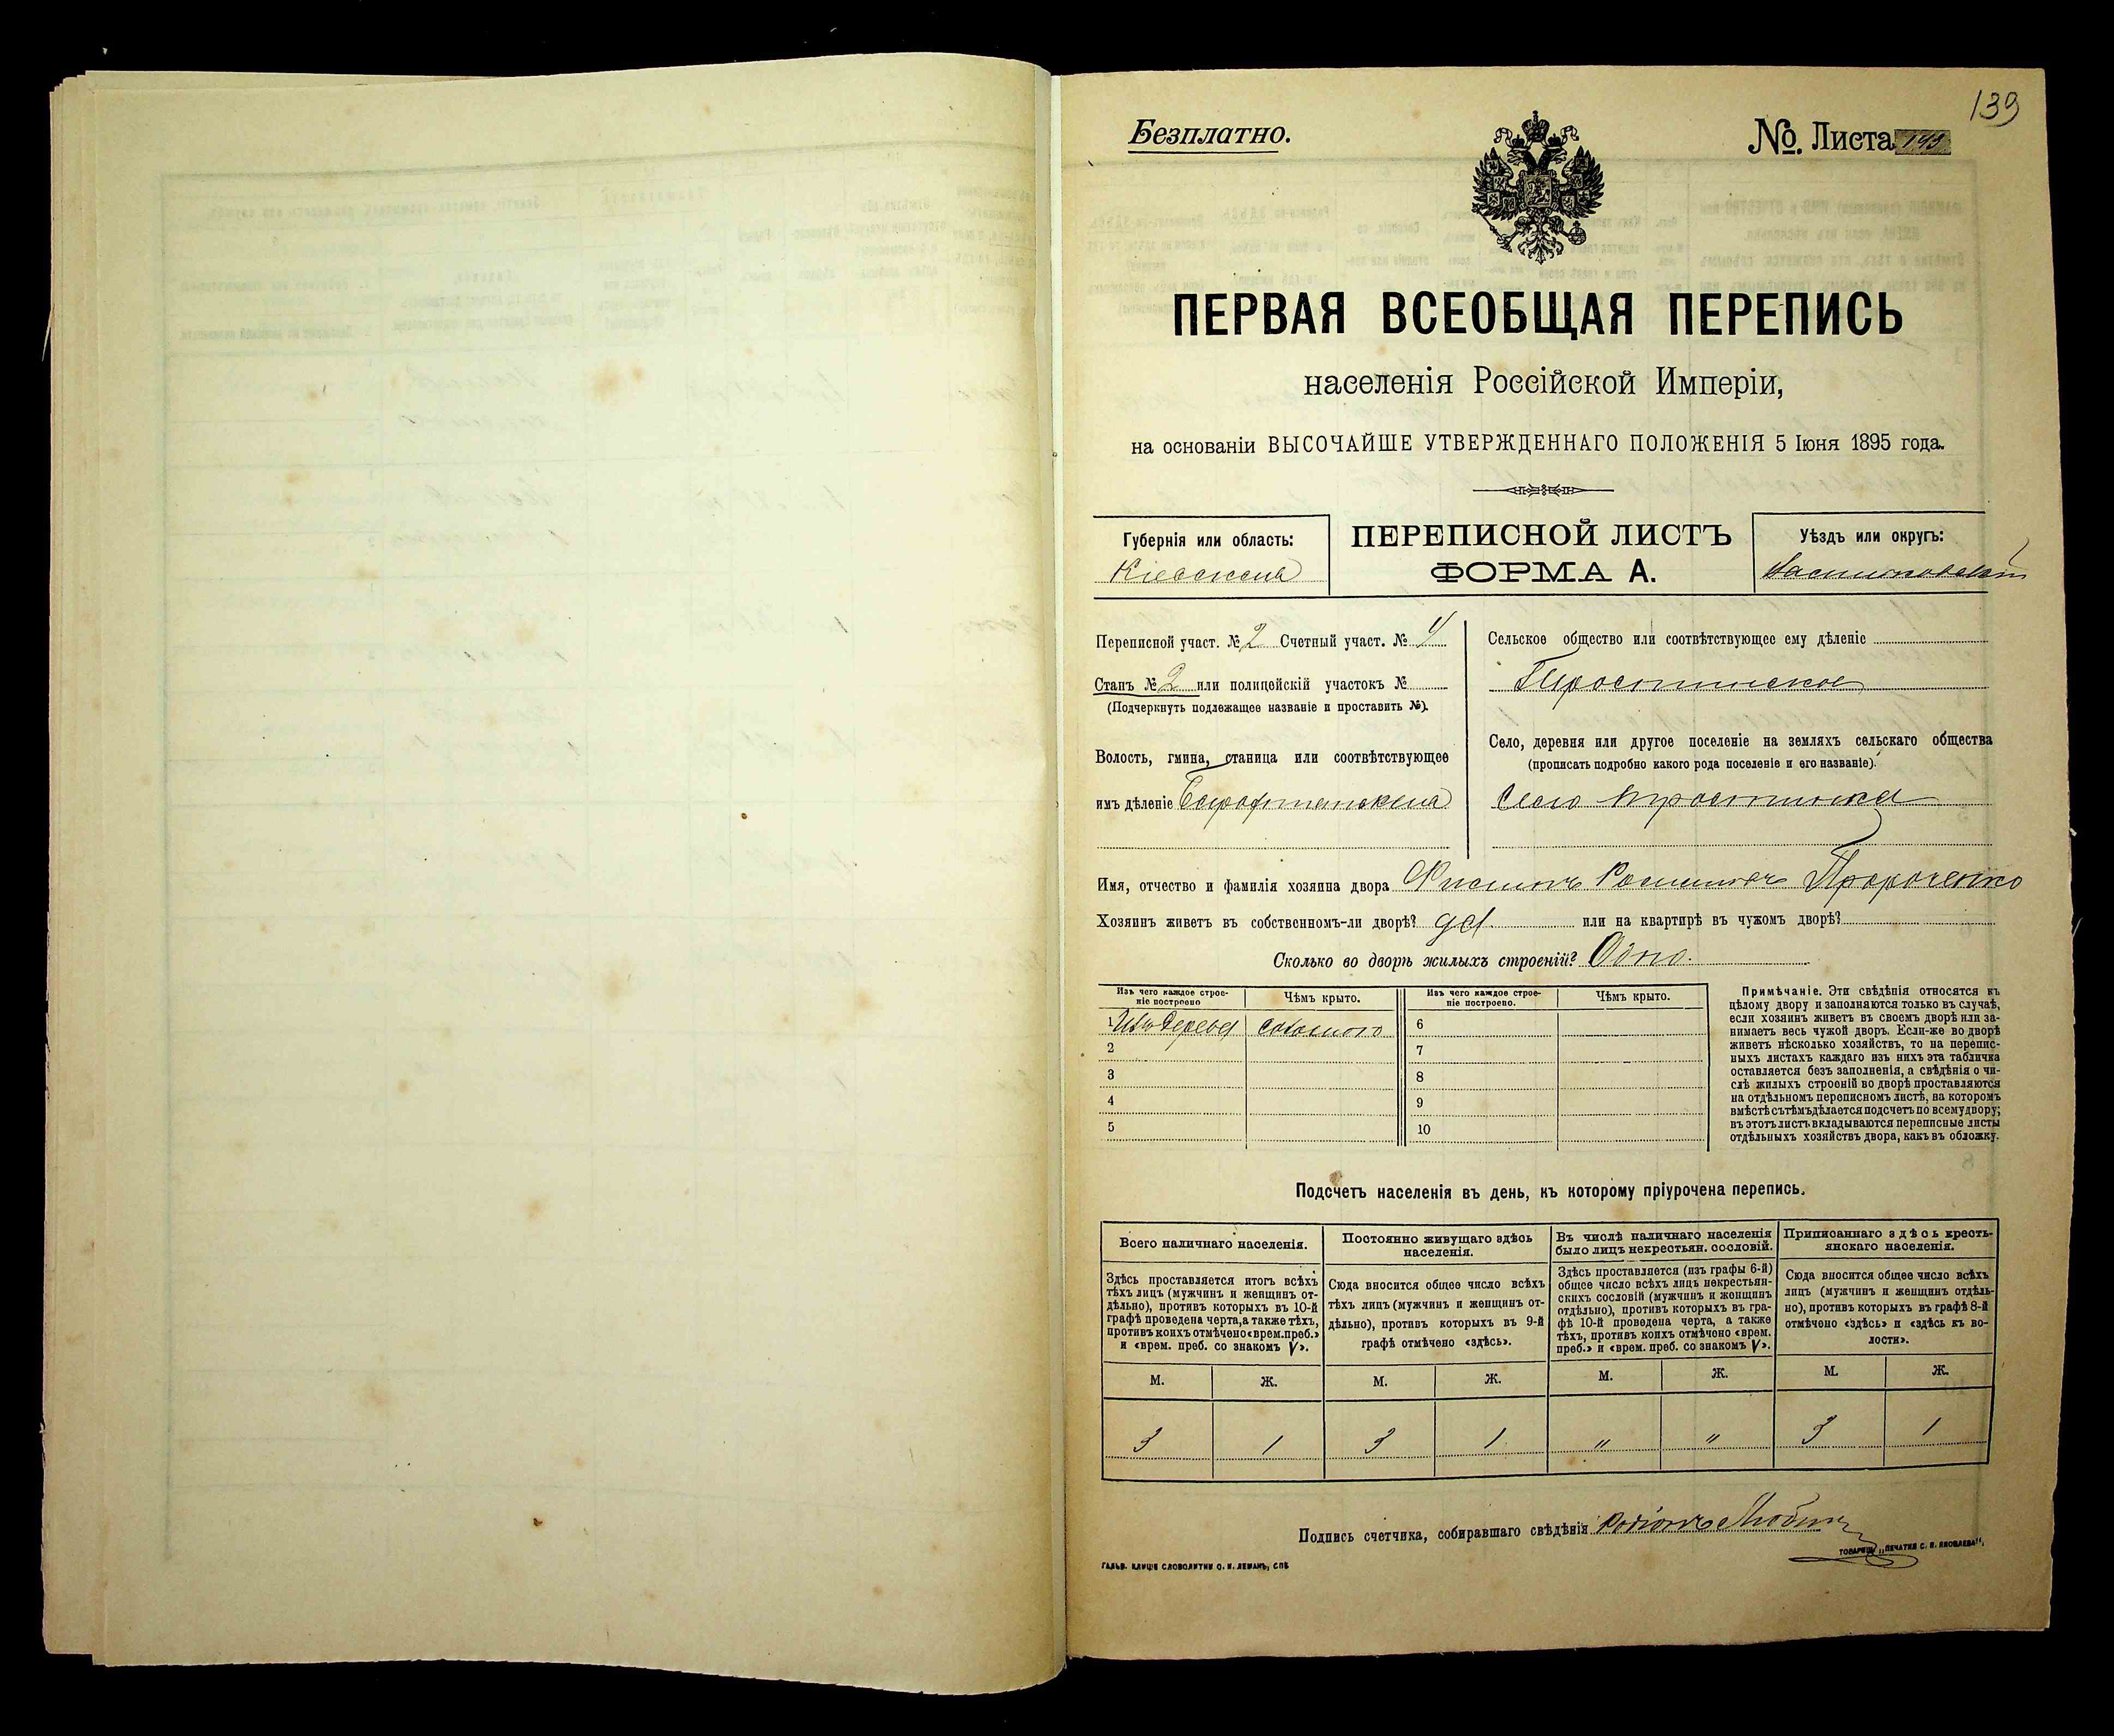 139
Безплатно.
№. Листа 143
ПЕРВАЯ ВСЕОБЩАЯ ПЕРЕПИСЬ
населенія Россійской Имперіи,
на основаніи ВЫСОЧАЙШЕ УТВЕРЖДЕННАГО ПОЛОЖЕНІЯ 5 Іюня 1895 года.
Губернія или область:
Кіевская
ПЕРЕПИСНОЙ ЛИСТЪ
ФОРМА А.
Уѣздъ или округъ:
Переписной участ. № 2 Счетный участ. № 4
Станъ № 2 или полицейскій участокъ №
(Подчеркнуть подлежащее названіе и проставить №).
Волость, гмина, станица или соотвѣтствующее
имъ дѣленіе
Сельское общество или соотвѣтствующее ему дѣленіе
Тростинское
Село, деревня или другое поселеніе на земляхъ сельскаго общества
(прописать подробно какого рода поселеніе и его названіе).
Село Тростинка
Имя, отчество и фамилія хозяина двора Пророченко
Хозяинъ живетъ въ собственномъ-ли дворѣ? да или на квартирѣ въ чужомъ дворѣ?
Сколько во дворѣ жилыхъ строеній? Одно.
Изъ чего каждое строе-
ніе построено
Чѣмъ крыто.
Изъ чего каждое строе-
ніе построено.
Чѣмъ крыто.
1 Изъ дерева соломою 6
2 7
3 8
4 9
5 10
Примѣчаніе. Эти свѣдѣнія относятся къ
цѣлому двору и заполняются только въ случаѣ,
если хозяинъ живетъ въ своемъ дворѣ или за-
нимаетъ весь чужой дворъ. Если-же во дворѣ
живетъ нѣсколько хозяйствъ, то на перепис-
ныхъ листахъ каждаго изъ нихъ эта табличка
оставляется безъ заполненія, а свѣдѣнія о чи-
слѣ жилыхъ строеній во дворѣ проставляются
на отдѣльномъ переписномъ листѣ, на которомъ
вмѣстѣ съ тѣмъ дѣлается подсчетъ по всему двору;
въ этотъ листъ вкладываются переписные листы
отдѣльныхъ хозяйствъ двора, какъ въ обложку.
Подсчетъ населенія въ день, къ которому пріурочена перепись.
Всего наличнаго населенія.
Здѣсь проставляется итогъ всѣхъ
тѣхъ лицъ (мужчинъ и женщинъ от-
дѣльно), противъ которыхъ въ 10-й
графѣ проведена черта, а также тѣхъ,
противъ коихъ отмѣчено «врем. преб.»
и «врем. преб. со знакомъ V».
Постоянно живущаго здѣсь
населенія.
Сюда вносится общее число всѣхъ
тѣхъ лицъ (мужчинъ и женщинъ от-
дѣльно), противъ которыхъ въ 9-й
графѣ отмѣчено «здѣсь».
Въ числѣ наличнаго населенія
было лицъ некрестьян. сословій.
Здѣсь проставляется (изъ графы 6-й)
общее число всѣхъ лицъ некрестьян-
скихъ сословій (мужчинъ и женщинъ
отдѣльно), противъ которыхъ въ гра-
фѣ 10-й проведена черта, а также
тѣхъ, противъ коихъ отмѣчено «врем.
преб.» и «врем. преб. со знакомъ V».
Приписаннаго здѣсь кресть-
янскаго населенія.
Сюда вносится общее число всѣхъ
лицъ (мужчинъ и женщинъ отдѣль-
но), противъ которыхъ въ графѣ 8-й
отмѣчено «здѣсь» и «здѣсь въ во-
лости».
М. Ж. М. Ж. М. Ж. М. Ж.
3 1 3 1 " " 3 1
Подпись счетчика, собиравшаго свѣдѣнія Родіонъ
ГАЛЬВ. КЛИШЕ СЛОВОЛИТНИ О. И. ЛЕМАНЪ, СПБ
ТОВАРИЩ. „ПЕЧАТНЯ С. П. ЯКОВЛЕВА“,